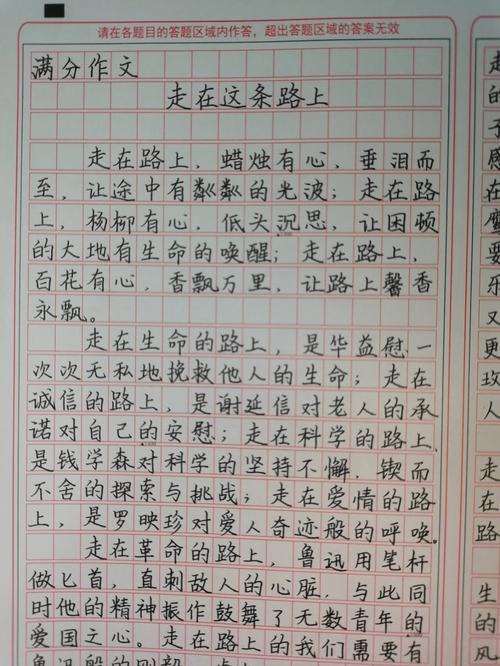 请在各题目的答题区域内作答，超出答题区域的答案无效
满分作文
走在这条路上
走在路上，蜡烛有心，垂泪而
至，让途中有粼粼的光波；走在路
上，杨柳有心，低头沉思，让困顿
的大地有生命的唤醒；走在路上，
百花有心，香飘万里，让路上馨香
永飘。
走在生命的路上，是华益慰一
次次无私地挽救他人的生命；走在
诚信的路上，是谢延信对老人的承
诺对自己的安慰；走在科学的路上，
是钱学森对科学的坚持不懈，锲而
不舍的探索与挑战；走在爱情的路
上，是罗映珍对爱人奇迹般的呼唤。
走在革命的路上，鲁迅用笔杆
做匕首，直刺敌人的心脏，与此同
时他的精神振作鼓舞了无数青年的
爱国之心。走在路上的我们需要有
走
的
子
感
在
雁
要
乐
又
更
玫
走
在
生
的
风